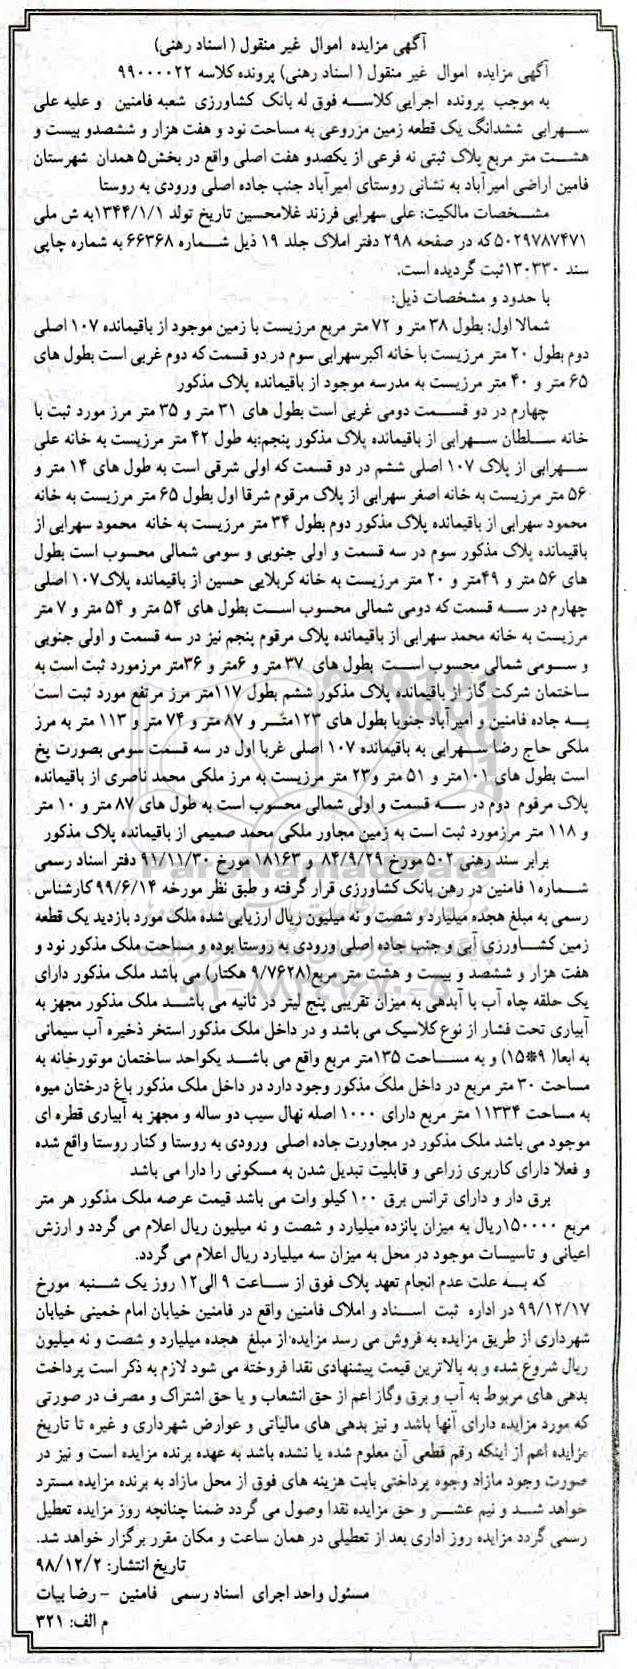 آگهی مزایده اموال غیر منقول ( اسناد رهنی)
آگهی مزایده اموال غیر منقول ( اسناد رهنی) پرونده کلاسه ۹۹۰۰۰۰۲۲
به موجب پرونده اجرایی کلاسه فوق له بانک کشاورزی شعبه فامنین و علیه علی
سهرابی ششدانگ یک قطعه زمین مزروعی به مساحت نود و هفت هزار و ششصدو بیست و
هشت متر مربع پلاک ثبتی نه فرعی از یکصدو هفت اصلی واقع در بخش۵ همدان شهرستان
فامین اراضی امیرآباد به نشانی روستای امیرآباد جنب جاده اصلی ورودی به روستا
مشخصات مالکیت: علی سهرابی فرزند غلامحسین تاریخ تولد ۱۳۴۴/۱/۱به ش ملی
۵۰۲۹۷۸۷۴۷۱ که در صفحه ۲۹۸ دفتر املاک جلد ۱۹ ذیل شماره ۶۶۳۶۸ به شماره چاپی
سند ۱۳۰۳۳۰ثبت گردیده است.
با حدود و مشخصات ذیل:
شمالا اول: بطول ۳۸ متر و ۷۲ متر مربع مرزیست با زمین موجود از باقیمانده ۱۰۷ اصلی
دوم بطول ۲۰ متر مرزیست با خانه اکبرسهرابی سوم در دو قسمت که دوم غربی است بطول های
۶۵ متر و ۴۰ متر مرزیست به مدرسه موجود از باقیمانده پلاک مذکور
چهارم در دو قسمت دومی غربی است بطول های ۳۱ متر و ۳۵ متر مرز مورد ثبت با
خانه سلطان سهرابی از باقیمانده پلاک مذکور پنجم:به طول ۴۲ متر مرزیست به خانه علی
سهرابی از پلاک ۱۰۷ اصلی ششم در دو قسمت که اولی شرقی است به طول های ۱۴ متر و
۵۶ متر مرزیست به خانه اصغر سهرابی از پلاک مرقوم شرقا اول بطول ۶۵ متر مرزیست به خانه
محمود سهرابی از باقیمانده پلاک مذکور دوم بطول ۳۴ متر مرزیست به خانه محمود سهرابی از
باقیمانده پلاک مذکور سوم در سه قسمت و اولی جنوبی و سومی شمالی محسوب است بطول
های ۵۶ متر و ۴۹متر و ۲۰ متر مرزیست به خانه کربلایی حسین از باقیمانده پلاک۱۰۷ اصلی
چهارم در سه قسمت که دومی شمالی محسوب است بطول های ۵۴ متر و ۵۴ متر و ۷ متر
مرزیست به خانه محمد سهرابی از باقیمانده پلاک مرقوم پنجم نیز در سه قسمت و اولی جنوبی
و سومی شمالی محسوب است بطول های ۳۷ متر و ۶متر و ۳۶متر مرزمورد ثبت است به
ساختمان شرکت گاز از باقیمانده پلاک مذکور ششم بطول ۱۱۷متر مرز مرتفع مورد ثبت است
به جاده فامنین و امیرآباد جنوبا بطول های ۱۲۳متر و ۸۷ متر و ۷۴ متر و ۱۱۳ متر به مرز
ملکی حاج رضا سهرابی به باقیمانده ۱۰۷ اصلی غربا اول در سه قسمت سومی بصورت پخ
است بطول های ۱۰۱متر و ۵۱ متر و۲۳ متر مرزیست به مرز ملکی محمد ناصری از باقیمانده
پلاک مرقوم دوم در سه قسمت و اولی شمالی محسوب است به طول های ۸۷ متر و ۱۰ متر
و ۱۱۸ متر مرزمورد ثبت است به زمین مجاور ملکی محمد صمیمی از باقیمانده پلاک مذکور
برابر سند رهنی ۵۰۲ مورخ ۸۴/۹/۲۹ و ۱۸۱۶۳ مورخ ۹۱/۱۱/۳۰ دفتر اسناد رسمی
شماره۱ فامنین در رهن بانک کشاورزی قرار گرفته و طبق نظر مورخه ۹۹/۶/۱۴ کارشناس
رسمی به مبلغ هجده میلیارد و شصت و نه میلیون ریال ارزیابی شده ملک مورد بازدید یک قطعه
زمین کشاورزی آبی و جنب جاده اصلی ورودی به روستا بوده و مساحت ملک مذکور نود و
هفت هزار و ششصد و بیست و هشت متر مربع(۹/۷۶۲۸ هکتار) می باشد ملک مذکور دارای
یک حلقه چاه آب با آبدهی به میزان تقریبی پنج لیتر در ثانیه می باشد ملک مذکور مجهز به
آبیاری تحت فشار از نوع کلاسیک می باشد و در داخل ملک مذکور استخر ذخیره آب سیمانی
به ابعا( ۹*۱۵) و به مساحت ۱۳۵متر مربع واقع می باشد یکواحد ساختمان موتورخانه به
مساحت ۳۰ متر مربع در داخل ملک مذکور وجود دارد در داخل ملک مذکور باغ درختان میوه
به مساحت ۱۱۳۳۴ متر مربع دارای ۱۰۰۰ اصله نهال سیب دو ساله و مجهز به آبیاری قطره ای
موجود می باشد ملک مذکور در مجاورت جاده اصلی ورودی به روستا و کنار روستا واقع شده
و فعلا دارای کاربری زراعی و قابلیت تبدیل شدن به مسکونی را دارا می باشد
برق دار و دارای ترانس برق ۱۰۰ کیلو وات می باشد قیمت عرصه ملک مذکور هر متر
مربع ۱۵۰۰۰۰ریال به میزان پانزده میلیارد و شصت و نه میلیون ریال اعلام می گردد و ارزش
اعیانی و تاسیسات موجود در محل به میزان سه میلیارد ریال اعلام می گردد.
که به علت عدم انجام تعهد پلاک فوق از ساعت ۹ الی۱۲ روز یک شنبه مورخ
۹۹/۱۲/۱۷ در اداره ثبت اسناد و املاک فامنین واقع در فامنین خیابان امام خمینی خیابان
شهرداری از طریق مزایده به فروش می رسد مزایده از مبلغ هجده میلیارد و شصت و نه میلیون
ریال شروع شده و به بالاترین قیمت پیشنهادی نقدا فروخته می شود لازم به ذکر است پرداخت
بدهی های مربوط به آب و برق وگاز اعم از حق انشعاب و یا حق اشتراک و مصرف در صورتی
که مورد مزایده دارای آنها باشد و نیز بدهی های مالیاتی و عوارض شهرداری و غیره تا تاریخ
مزایده اعم از اینکه رقم قطعی آن معلوم شده یا نشده باشد به عهده برنده مزایده است و نیز در
صورت وجود مازاد وجوه پرداختی بابت هزینه های فوق از محل مازاد به برنده مزایده مسترد
خواهد شد و نیم عشر و حق مزایده نقدا وصول می گردد ضمنا چنانچه روز مزایده تعطیل
رسمی گردد مزایده روز اداری بعد از تعطیلی در همان ساعت و مکان مقرر برگزار خواهد شد.
تاریخ انتشار: ۹۸/۱۲/۲
مسئول واحد اجرای اسناد رسمی فامنین - رضا بیات
م الف: ۳۲۱
ParsNamadData
۰۲۱-۸۸۳۴۹۶۷۰-۵